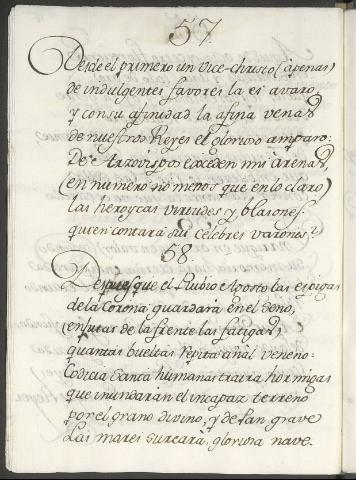 57.
Desde el primero un vice-christo (apenas)
de indulgentes favores la es avaro,
y con su afinidad la afina venas
de nuestros Reyes el glorioso amparo:
De Arzovispos exceden mi arenas,
(en numero no menos que en lo claro)
las heroycas virtudes y blasones.
quien contara sus celebres varones?
58.
Despues que el Rubio Aposto las espigas
de la Corona guardara en el seno,
(enjutas de la frente las fatigas)
quantas bueltas repita añal veneno:
Codicia santa humanas traira hormigas
que inundaran el incapaz terreno
por el grano divino, y de tan grave
Las mares surcara, gloriosa nave.